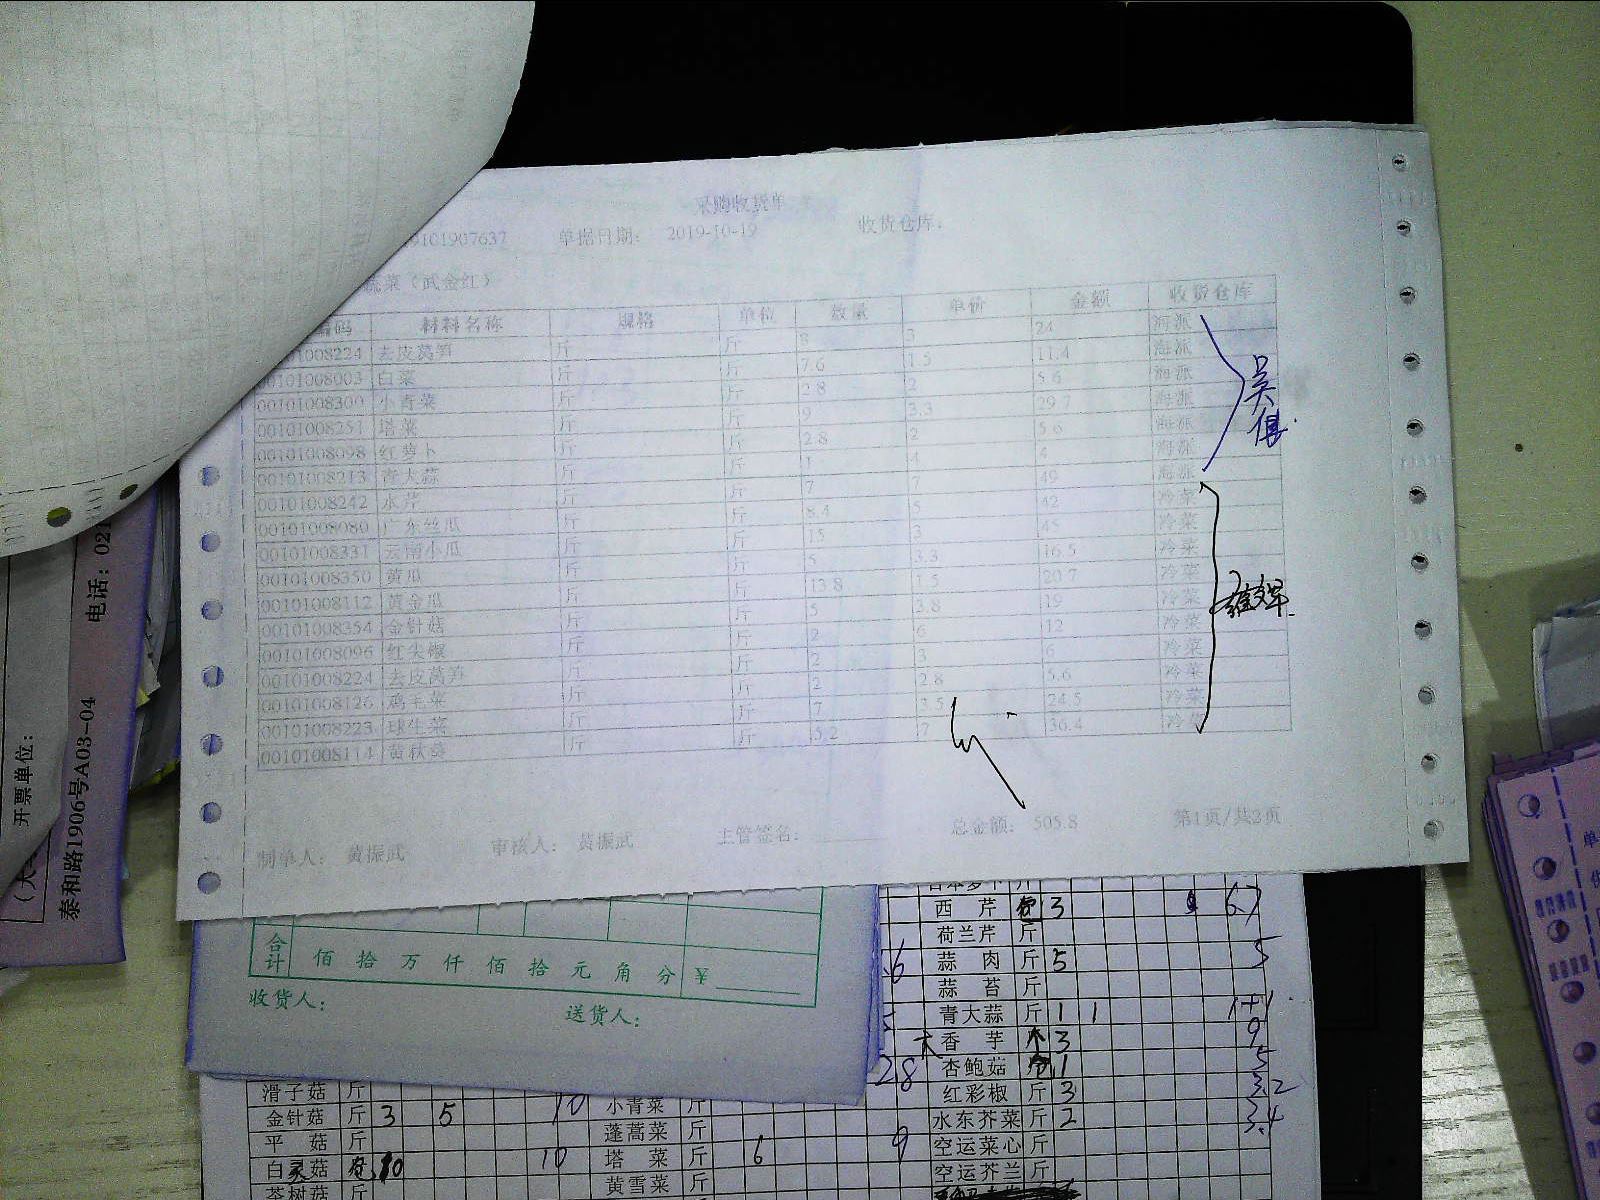 采购收货单
9101907637 单据日期： 2019-10-19 收货仓库：
蔬菜（武金红）
编码 材料名称 规格 单位 数量 单价 金额 收货仓库
00101008224 去皮莴笋 斤 斤 8 3 24 海派
00101008003 白菜 斤 斤 7.6 1.5 11.4 海派
00101008300 小青菜 斤 斤 2.8 2 5.6 海派
00101008251 塔菜 斤 斤 9 3.3 29.7 海派
00101008098 红萝卜 斤 斤 2.8 2 5.6 海派
00101008213 青大蒜 斤 斤 1 4 4 海派
00101008242 水芹 斤 斤 7 7 49 海派
00101008080 广东丝瓜 斤 斤 8.4 5 42 冷菜
00101008331 云南小瓜 斤 斤 15 3 45 冷菜
00101008350 黄瓜 斤 斤 5 3.3 16.5 冷菜
00101008112 黄金瓜 斤 斤 13.8 1.5 20.7 冷菜
00101008354 金针菇 斤 斤 5 3.8 19 冷菜
00101008096 红尖椒 斤 斤 2 6 12 冷菜
00101008224 去皮莴笋 斤 斤 2 3 6 冷菜
00101008126 鸡毛菜 斤 斤 2 2.8 5.6 冷菜
00101008223 球生菜 斤 斤 7 3.5 24.5 冷菜
00101008114 黄秋葵 斤 斤 5.2 7 36.4 冷菜
制单人： 黄振武 审核人： 黄振武 主管签名： 总金额： 505.8 第1页/共2页
合计 佰 拾 万 仟 佰 拾 元 角 分 ￥
收货人： 送货人：
西芹 3 6.7
荷兰芹 斤
蒜肉 斤 5 5
蒜苔 斤
青大蒜 斤 1 1 1+1
大香芋 个 3 9
杏鲍菇 1 5
红彩椒 斤 3 3.2
水东芥菜 斤 2 3.4
空运菜心 斤
空运芥兰 斤
滑子菇 斤
金针菇 斤 3 5 10 小青菜 斤 28
平菇 斤 蓬蒿菜 斤
白灵菇 10 10 塔菜 斤 6 9
茶树菇 斤 黄雪菜 斤
开票单位：
泰和路1906号A03-04 电话：021